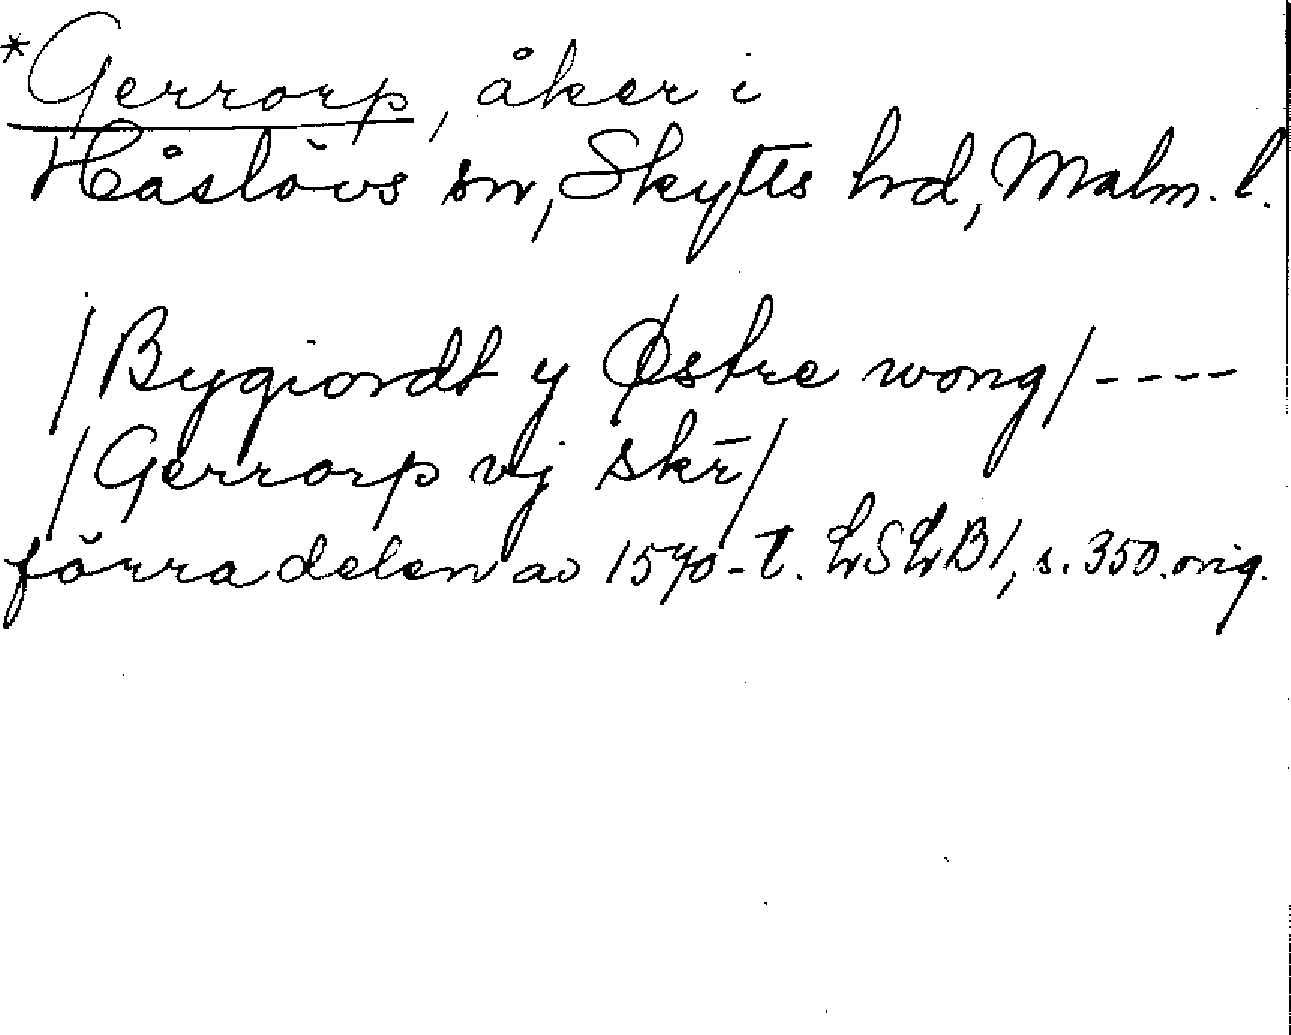 *Gerrorp, åker i
Håslövs sn, Skytts hd, Malm. l.
/Bygiordt y Østre wong/ ----
/Gerrorp vij skr̄/
förra delen av 1570-t. LSLB1, s. 350. orig.